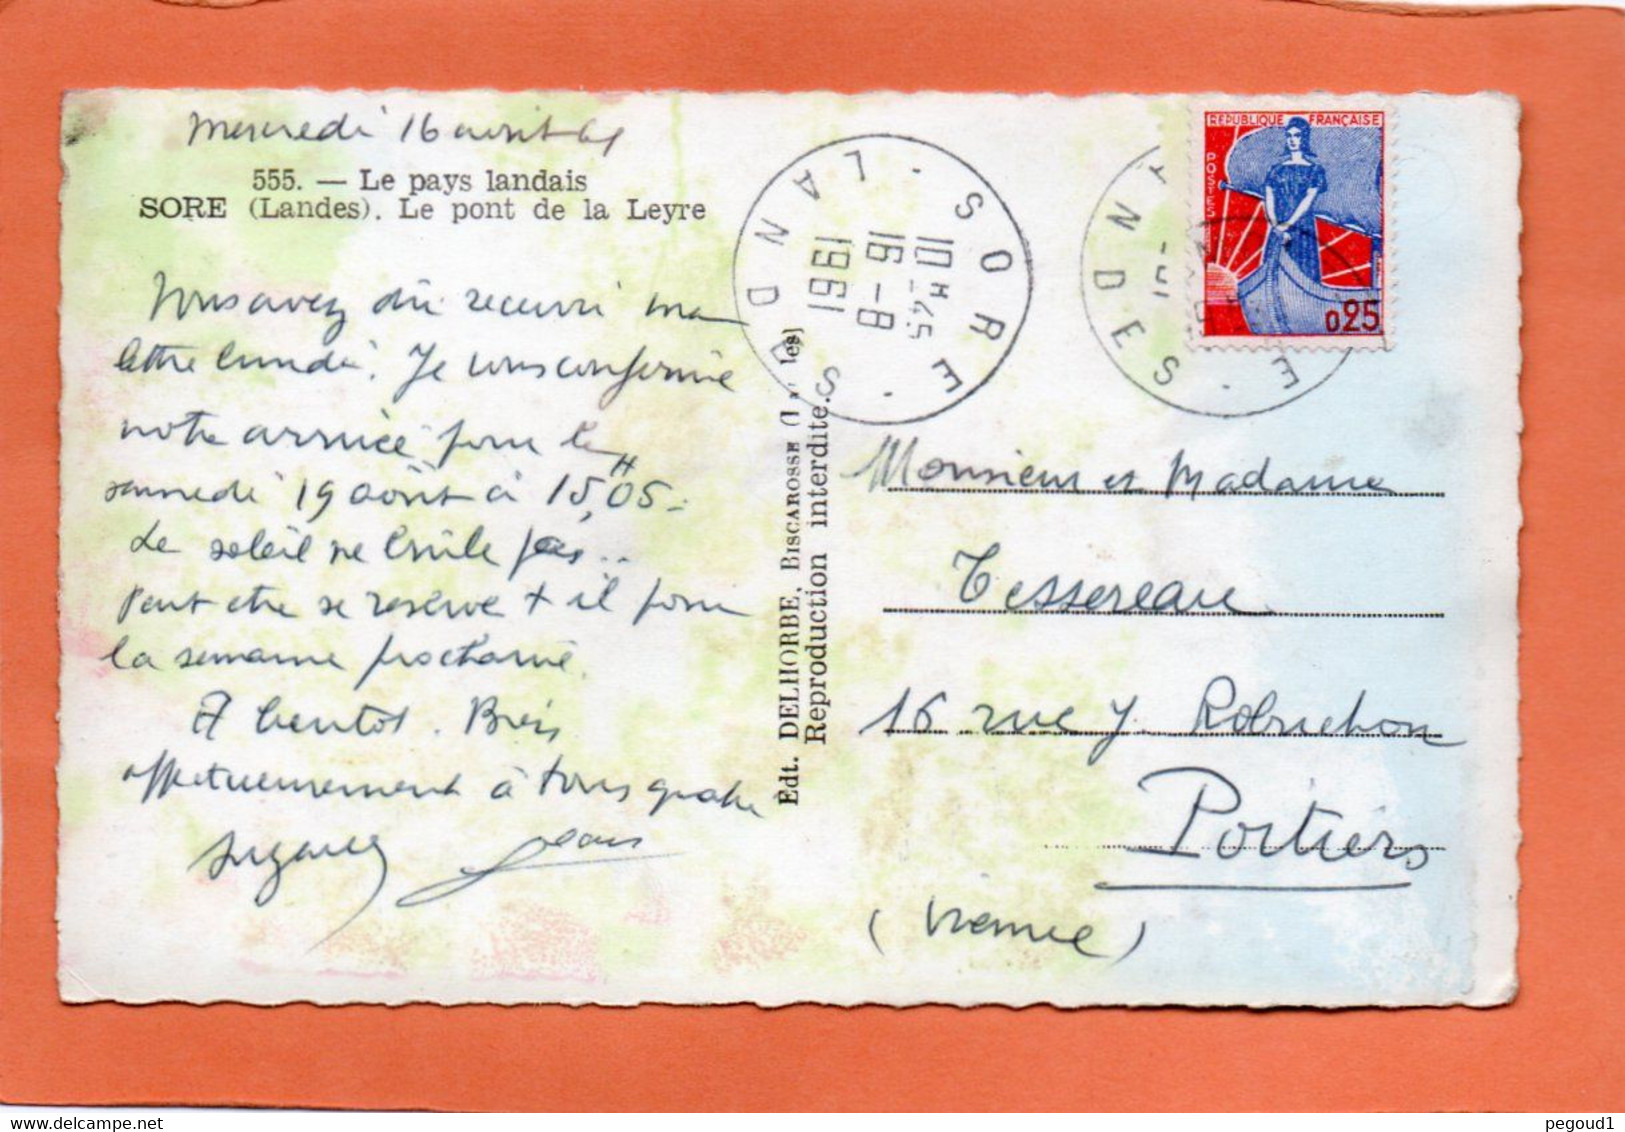 Mercredi 16 août 61
555. — Le pays landais
SORE (Landes). Le pont de la Leyre
Vous avez dû recevoir ma
lettre lundi. Je vous confirme
notre arrivée pour le
samedi 19 août à 15H,05.
Le soleil ne brille pas..
Peut etre se reserve t il pour
la semaine prochaine.
A bientot. Bien
affectueusement à tous quatre
Suzanne Jean
Edt. DELHORBE, BISCAROSSE
Reproduction interdite.
SORE LANDES
10H45
16-8
1961
REPUBLIQUE FRANÇAISE
POSTES
0,25
Monsieur et Madame
Tessereau
16 rue J. Robuchon
Poitiers
(Vienne)
pegoud1